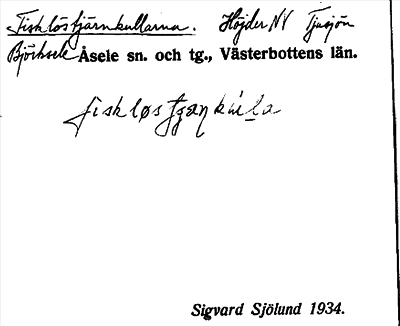 Fisklöstjärnkullarna. Höjder NV Tjusjön
Björksele Åsele sn. och tg., Västerbottens län.
fiskløstjạnkúla
Sigvard Sjölund 1934.